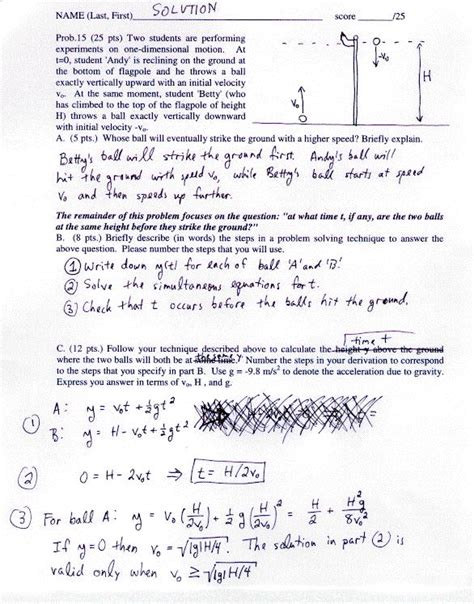 NAME (Last, First) SOLUTION score /25
Prob.15 (25 pts) Two students are performing
experiments on one-dimensional motion. At
t=0, student 'Andy' is reclining on the ground at
the bottom of flagpole and he throws a ball
exactly vertically upward with an initial velocity
v₀. At the same moment, student 'Betty' (who
has climbed to the top of the flagpole of height
H) throws a ball exactly vertically downward
with initial velocity -v₀.
-v₀
H
v₀
A. (5 pts.) Whose ball will eventually strike the ground with a higher speed? Briefly explain.
Betty's ball will strike the ground first. Andy's ball will
hit the ground with speed v₀, while Betty's ball starts at speed
v₀ and then speeds up further.
The remainder of this problem focuses on the question: "at what time t, if any, are the two balls
at the same height before they strike the ground?"
B. (8 pts.) Briefly describe (in words) the steps in a problem solving technique to answer the
above question. Please number the steps that you will use.
① Write down y(t) for each of ball 'A' and 'B'.
② Solve the simultaneous equations for t.
③ Check that t occurs before the balls hit the ground.
time t
C. (12 pts.) Follow your technique described above to calculate the height y above the ground
where the two balls will both be at the same y. Number the steps in your derivation to correspond
to the steps that you specify in part B. Use g = -9.8 m/s² to denote the acceleration due to gravity.
Express you answer in terms of v₀, H , and g.
① A: y = v₀t + ½gt²
B: y = H - v₀t + ½gt²
② 0 = H - 2v₀t ⇒ t = H/2v₀
③ For ball A: y = v₀(H/2v₀) + ½ g(H/2v₀)² = H/2 + H²g/8v₀²
If y=0 then v₀ = √|g|H/4. The solution in part ② is
valid only when v₀ ≥ √|g|H/4